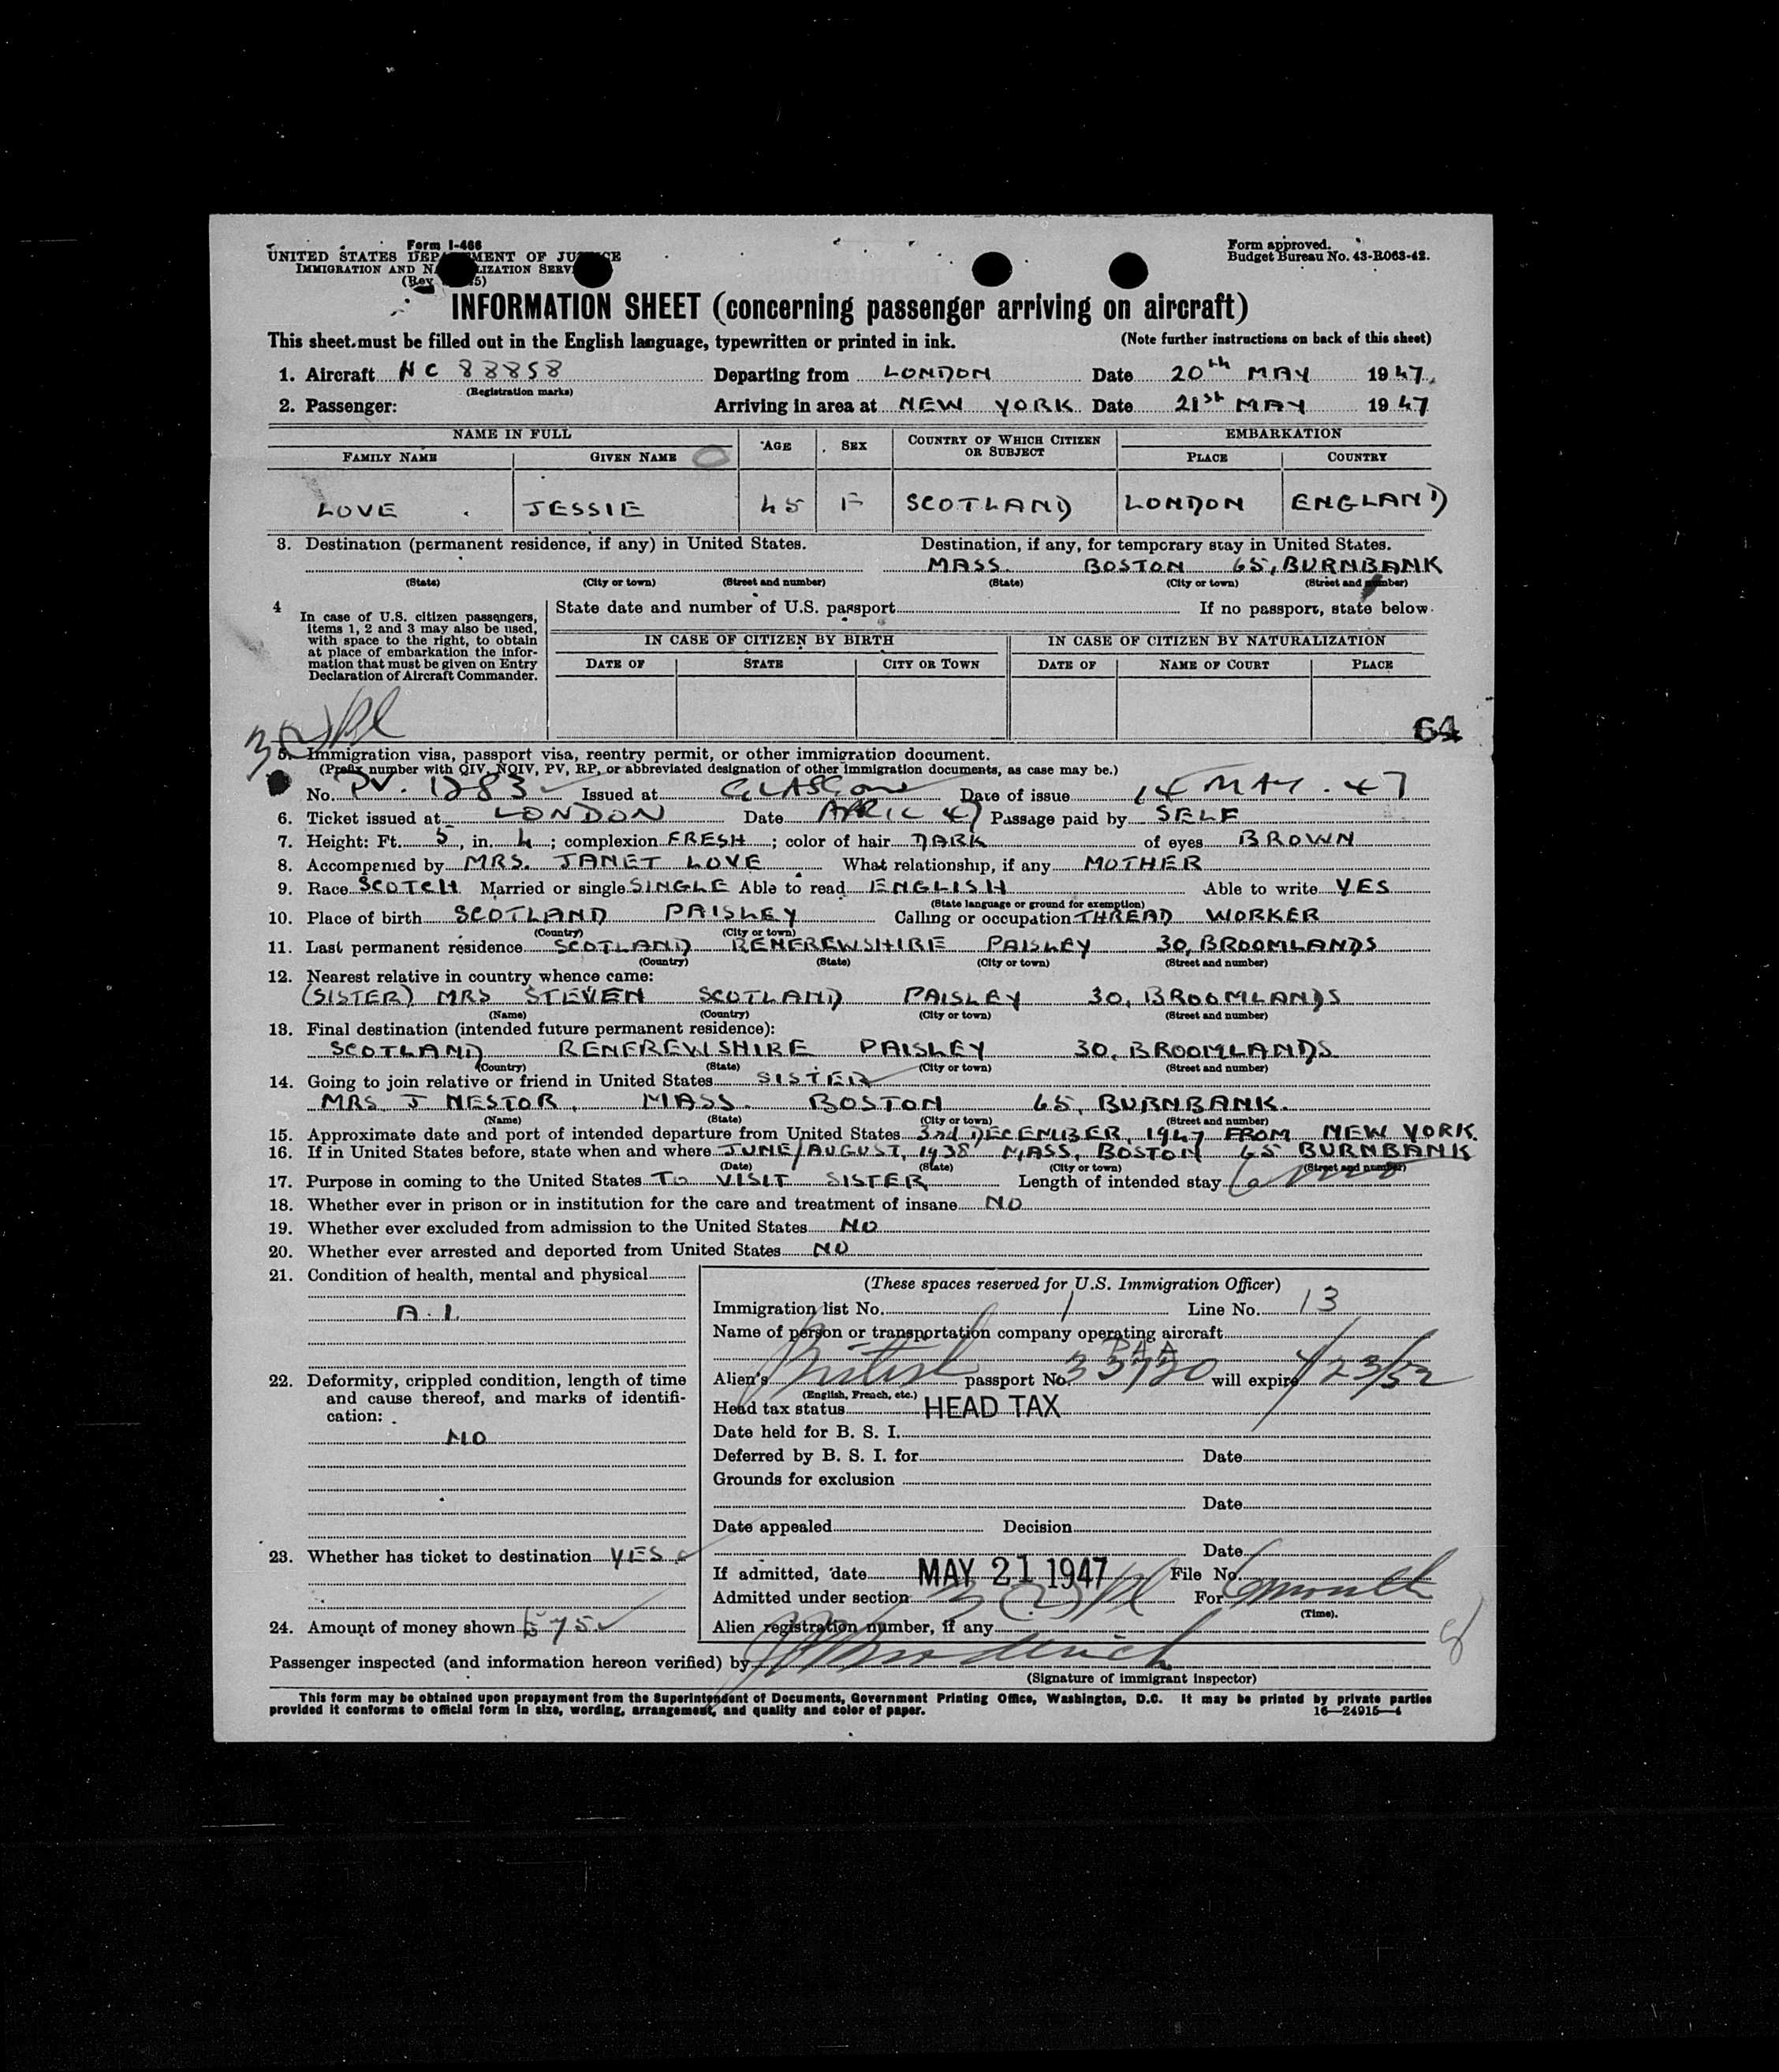 Form I-466
UNITED STATES DEPARTMENT OF JUSTICE
IMMIGRATION AND NATURALIZATION SERVICE
(Rev 5)
Form approved.
Budget Bureau No. 43-R063-42.
INFORMATION SHEET (concerning passenger arriving on aircraft)
This sheet must be filled out in the English language, typewritten or printed in ink. (Note further instructions on back of this sheet)
1. Aircraft NC 88858 Departing from LONDON Date 20th MAY 1947
(Registration marks)
2. Passenger: Arriving in area at NEW YORK Date 21st MAY 1947
NAME IN FULL AGE SEX COUNTRY OF WHICH CITIZEN OR SUBJECT EMBARKATION
FAMILY NAME GIVEN NAME PLACE COUNTRY
LOVE JESSIE 45 F SCOTLAND LONDON ENGLAND
3. Destination (permanent residence, if any) in United States. Destination, if any, for temporary stay in United States.
MASS. BOSTON 65, BURNBANK
(State) (City or town) (Street and number) (State) (City or town) (Street and number)
4 In case of U.S. citizen passengers, items 1, 2 and 3 may also be used, with space to the right, to obtain at place of embarkation the information that must be given on Entry Declaration of Aircraft Commander.
State date and number of U.S. passport If no passport, state below
IN CASE OF CITIZEN BY BIRTH IN CASE OF CITIZEN BY NATURALIZATION
DATE OF STATE CITY OR TOWN DATE OF NAME OF COURT PLACE
64
5. Immigration visa, passport visa, reentry permit, or other immigration document.
(Prefix number with QIV, NQIV, PV, RP, or abbreviated designation of other immigration documents, as case may be.)
No. PV. 1283 Issued at GLASGOW Date of issue 14 MAY. 47
6. Ticket issued at LONDON Date APRIL 47 Passage paid by SELF
7. Height: Ft. 5, in. 4; complexion FRESH; color of hair DARK of eyes BROWN
8. Accompenied by MRS. JANET LOVE What relationship, if any MOTHER
9. Race SCOTCH Married or single SINGLE Able to read ENGLISH Able to write YES
(State language or ground for exemption)
10. Place of birth SCOTLAND PAISLEY Calling or occupation THREAD WORKER
(Country) (City or town)
11. Last permanent residence SCOTLAND RENFREWSHIRE PAISLEY 30, BROOMLANDS
(Country) (State) (City or town) (Street and number)
12. Nearest relative in country whence came:
(SISTER) MRS STEVEN SCOTLAND PAISLEY 30, BROOMLANDS
(Name) (Country) (City or town) (Street and number)
13. Final destination (intended future permanent residence):
SCOTLAND RENFREWSHIRE PAISLEY 30, BROOMLANDS
(Country) (State) (City or town) (Street and number)
14. Going to join relative or friend in United States SISTER
MRS J NESTOR, MASS. BOSTON 65, BURNBANK.
(Name) (State) (City or town) (Street and number)
15. Approximate date and port of intended departure from United States 3rd DECEMBER, 1947 FROM NEW YORK.
16. If in United States before, state when and where JUNE/AUGUST, 1938 MASS, BOSTON 65 BURNBANK
(Date) (State) (City or town) (Street and number)
17. Purpose in coming to the United States TO VISIT SISTER Length of intended stay 6 mos
18. Whether ever in prison or in institution for the care and treatment of insane NO
19. Whether ever excluded from admission to the United States NO
20. Whether ever arrested and deported from United States NO
21. Condition of health, mental and physical
A.1.
22. Deformity, crippled condition, length of time and cause thereof, and marks of identification:
NO
23. Whether has ticket to destination YES
24. Amount of money shown £75
(These spaces reserved for U.S. Immigration Officer)
Immigration list No. 1 Line No. 13
Name of person or transportation company operating aircraft
PAA
Alien's British passport No. 33720 will expire 4/23/52
(English, French, etc.)
Head tax status HEAD TAX
Date held for B. S. I.
Deferred by B. S. I. for Date
Grounds for exclusion
Date
Date appealed Decision
Date
If admitted, date MAY 21 1947 File No.
Admitted under section 3(2) For 6 month
(Time).
Alien registration number, if any
Passenger inspected (and information hereon verified) by
(Signature of immigrant inspector)
This form may be obtained upon prepayment from the Superintendent of Documents, Government Printing Office, Washington, D.C. It may be printed by private parties
provided it conforms to official form in size, wording, arrangement, and quality and color of paper. 16—24915-4